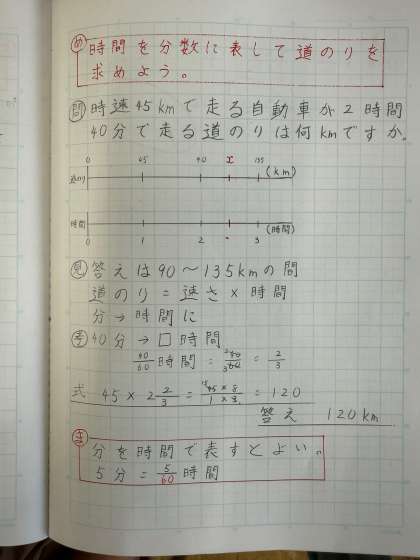 め 時間を分数に表して道のりを
求めよう。
問 時速45kmで走る自動車が2時間
40分で走る道のりは何kmですか。
0 45 90 x 135
道のり (km)
時間 (時間)
0 1 2 3
見 答えは90〜135kmの間
道のり=速さ×時間
分→時間に
考 40分→□時間
40/60時間=40/60=2/3
式 45×2 2/3=45×8/1×3=120
答え 120km
ま 分を時間で表すとよい。
5分=5/60時間